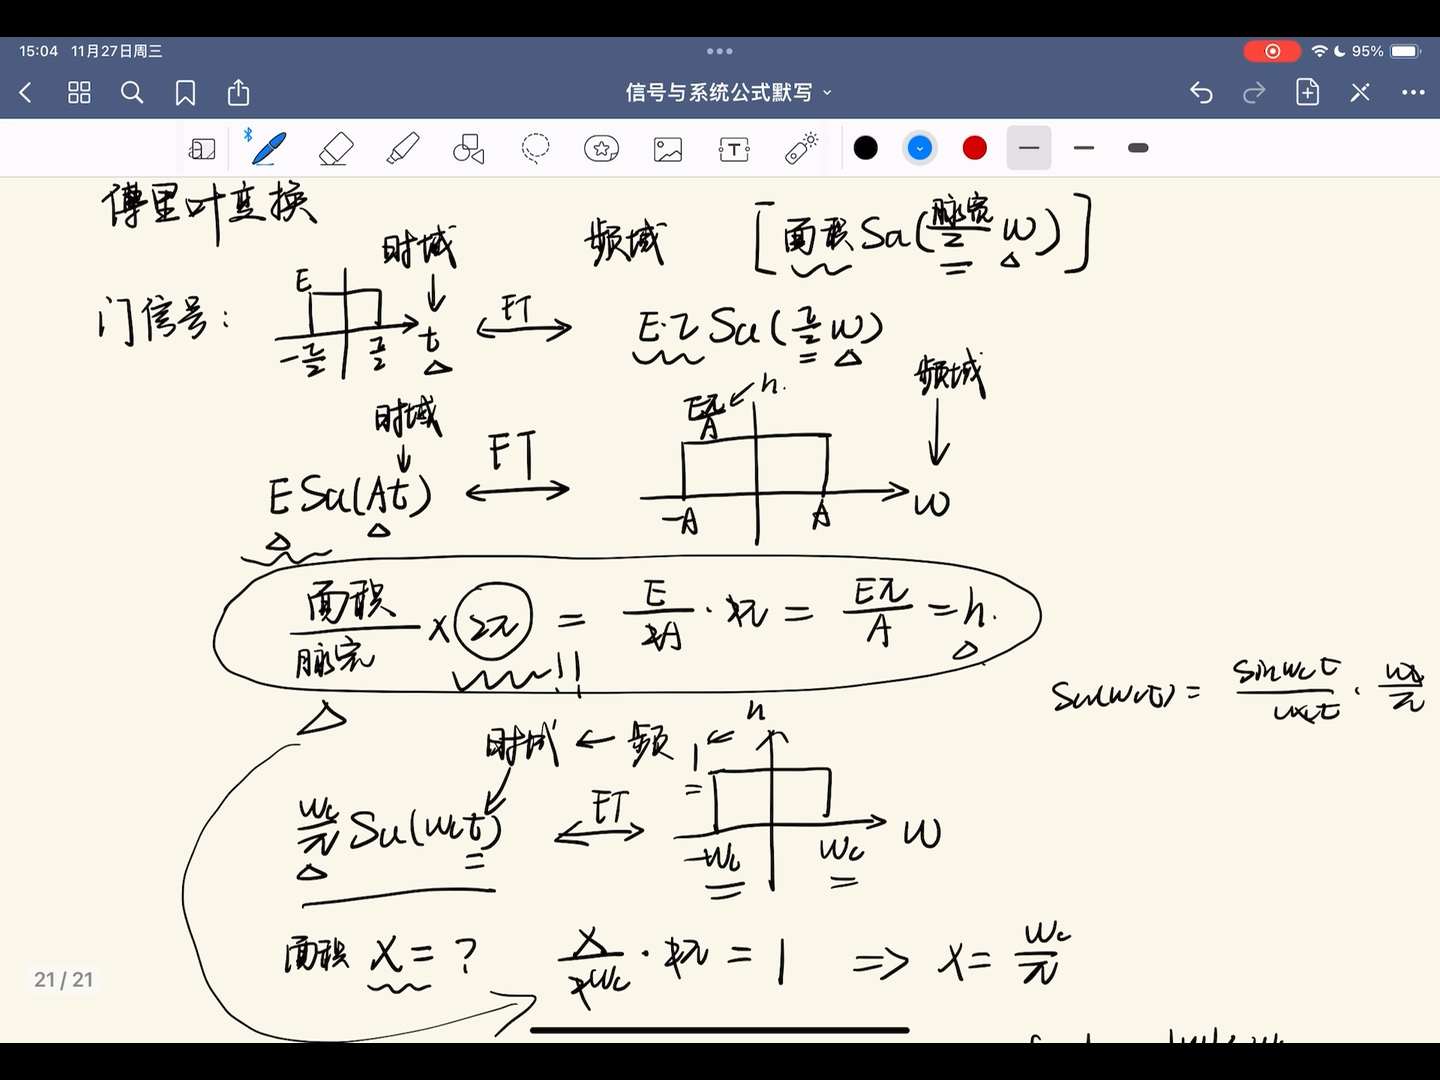 15:04 11月27日周三
95%
信号与系统公式默写
傅里叶变换
时域 频域 [面积 Sa(脉宽/2 ω)]
门信号: E -τ/2 τ/2 t FT E·τ Sa(τ/2 ω)
时域 Eπ/A h. 频域
E Sa(At) FT -A A ω
面积/脉宽 × 2π = E/2A · 2π = Eπ/A = h.
!!
Sa(ωct) = sinωct/ωct · ωc/π
时域 ← 频 1 h
ωc/π Sa(ωct) FT -ωc ωc ω
面积 X = ? X/2ωc · 2π = 1 => X = ωc/π
21 / 21